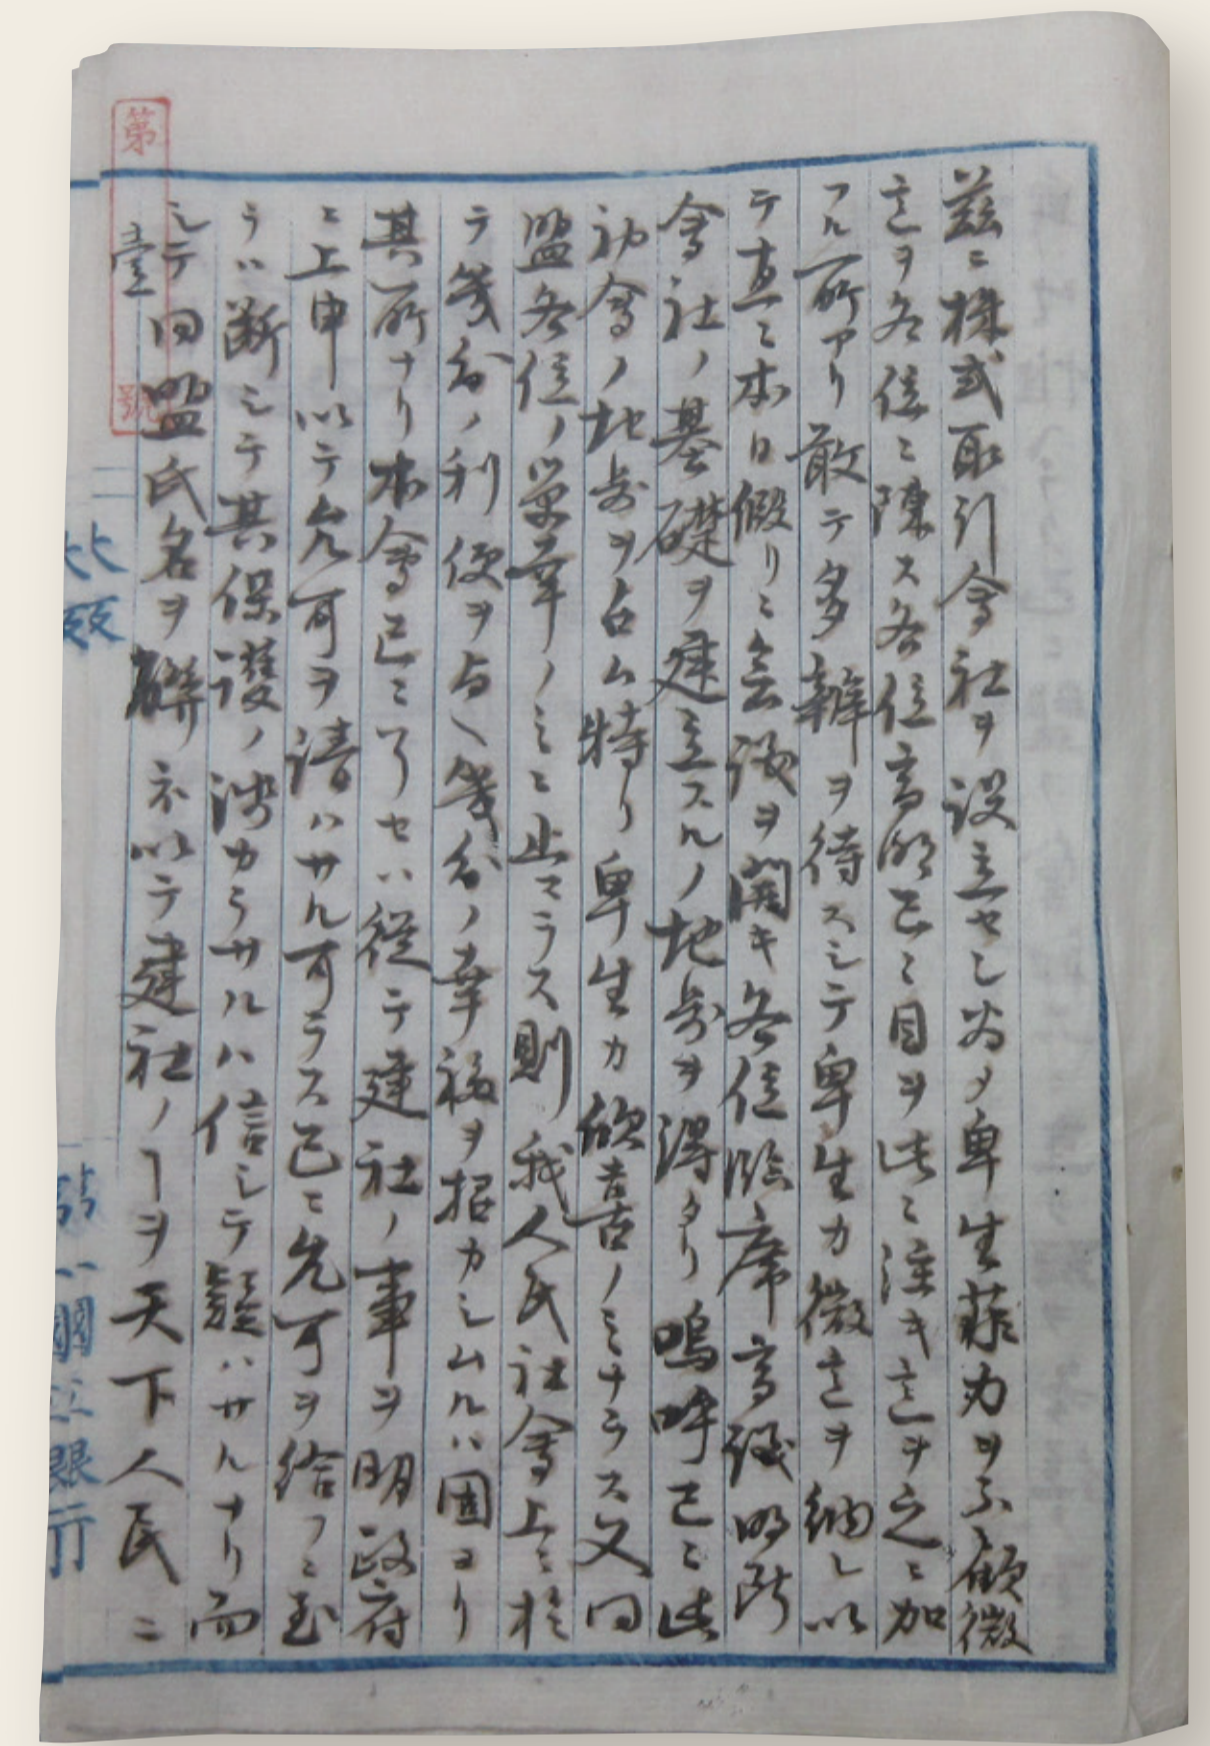 茲ニ株式取引會社ヲ設立セシ為メ卑生菲力ヲ不顧微
意ヲ各位ニ陳ス各位高明已ニ目ヲ此ニ注キ意ヲ之ニ加
フル所アリ敢テ多辯ヲ待スシテ卑生カ微意ヲ納レ以
テ直ニ本日假リニ會議ヲ開キ各位臨席高議明断
會社ノ基礎ヲ建立スルノ地歩ヲ得タリ嗚呼已ニ此
初會ノ地歩ヲ占ム特リ卑生カ欣喜ノミナラス又同
盟各位ノ栄幸ノミニ止マラス則我人民社會上ニ於
テ幾分ノ利便ヲ与ヘ幾分ノ幸福ヲ招カシムルハ固ヨリ
其所ナリ本會已ニ了セハ從テ建社ノ事ヲ明政府
ニ上申以テ允可ヲ請ハサル可ラス已ニ允可ヲ給フニ至
ラハ断シテ其保護ノ渉カラサルハ信シテ疑ハサルナリ而
シテ同盟氏名ヲ聯ネ以テ建社ノヿヲ天下人民ニ
第壹號
大阪
第八國立銀行